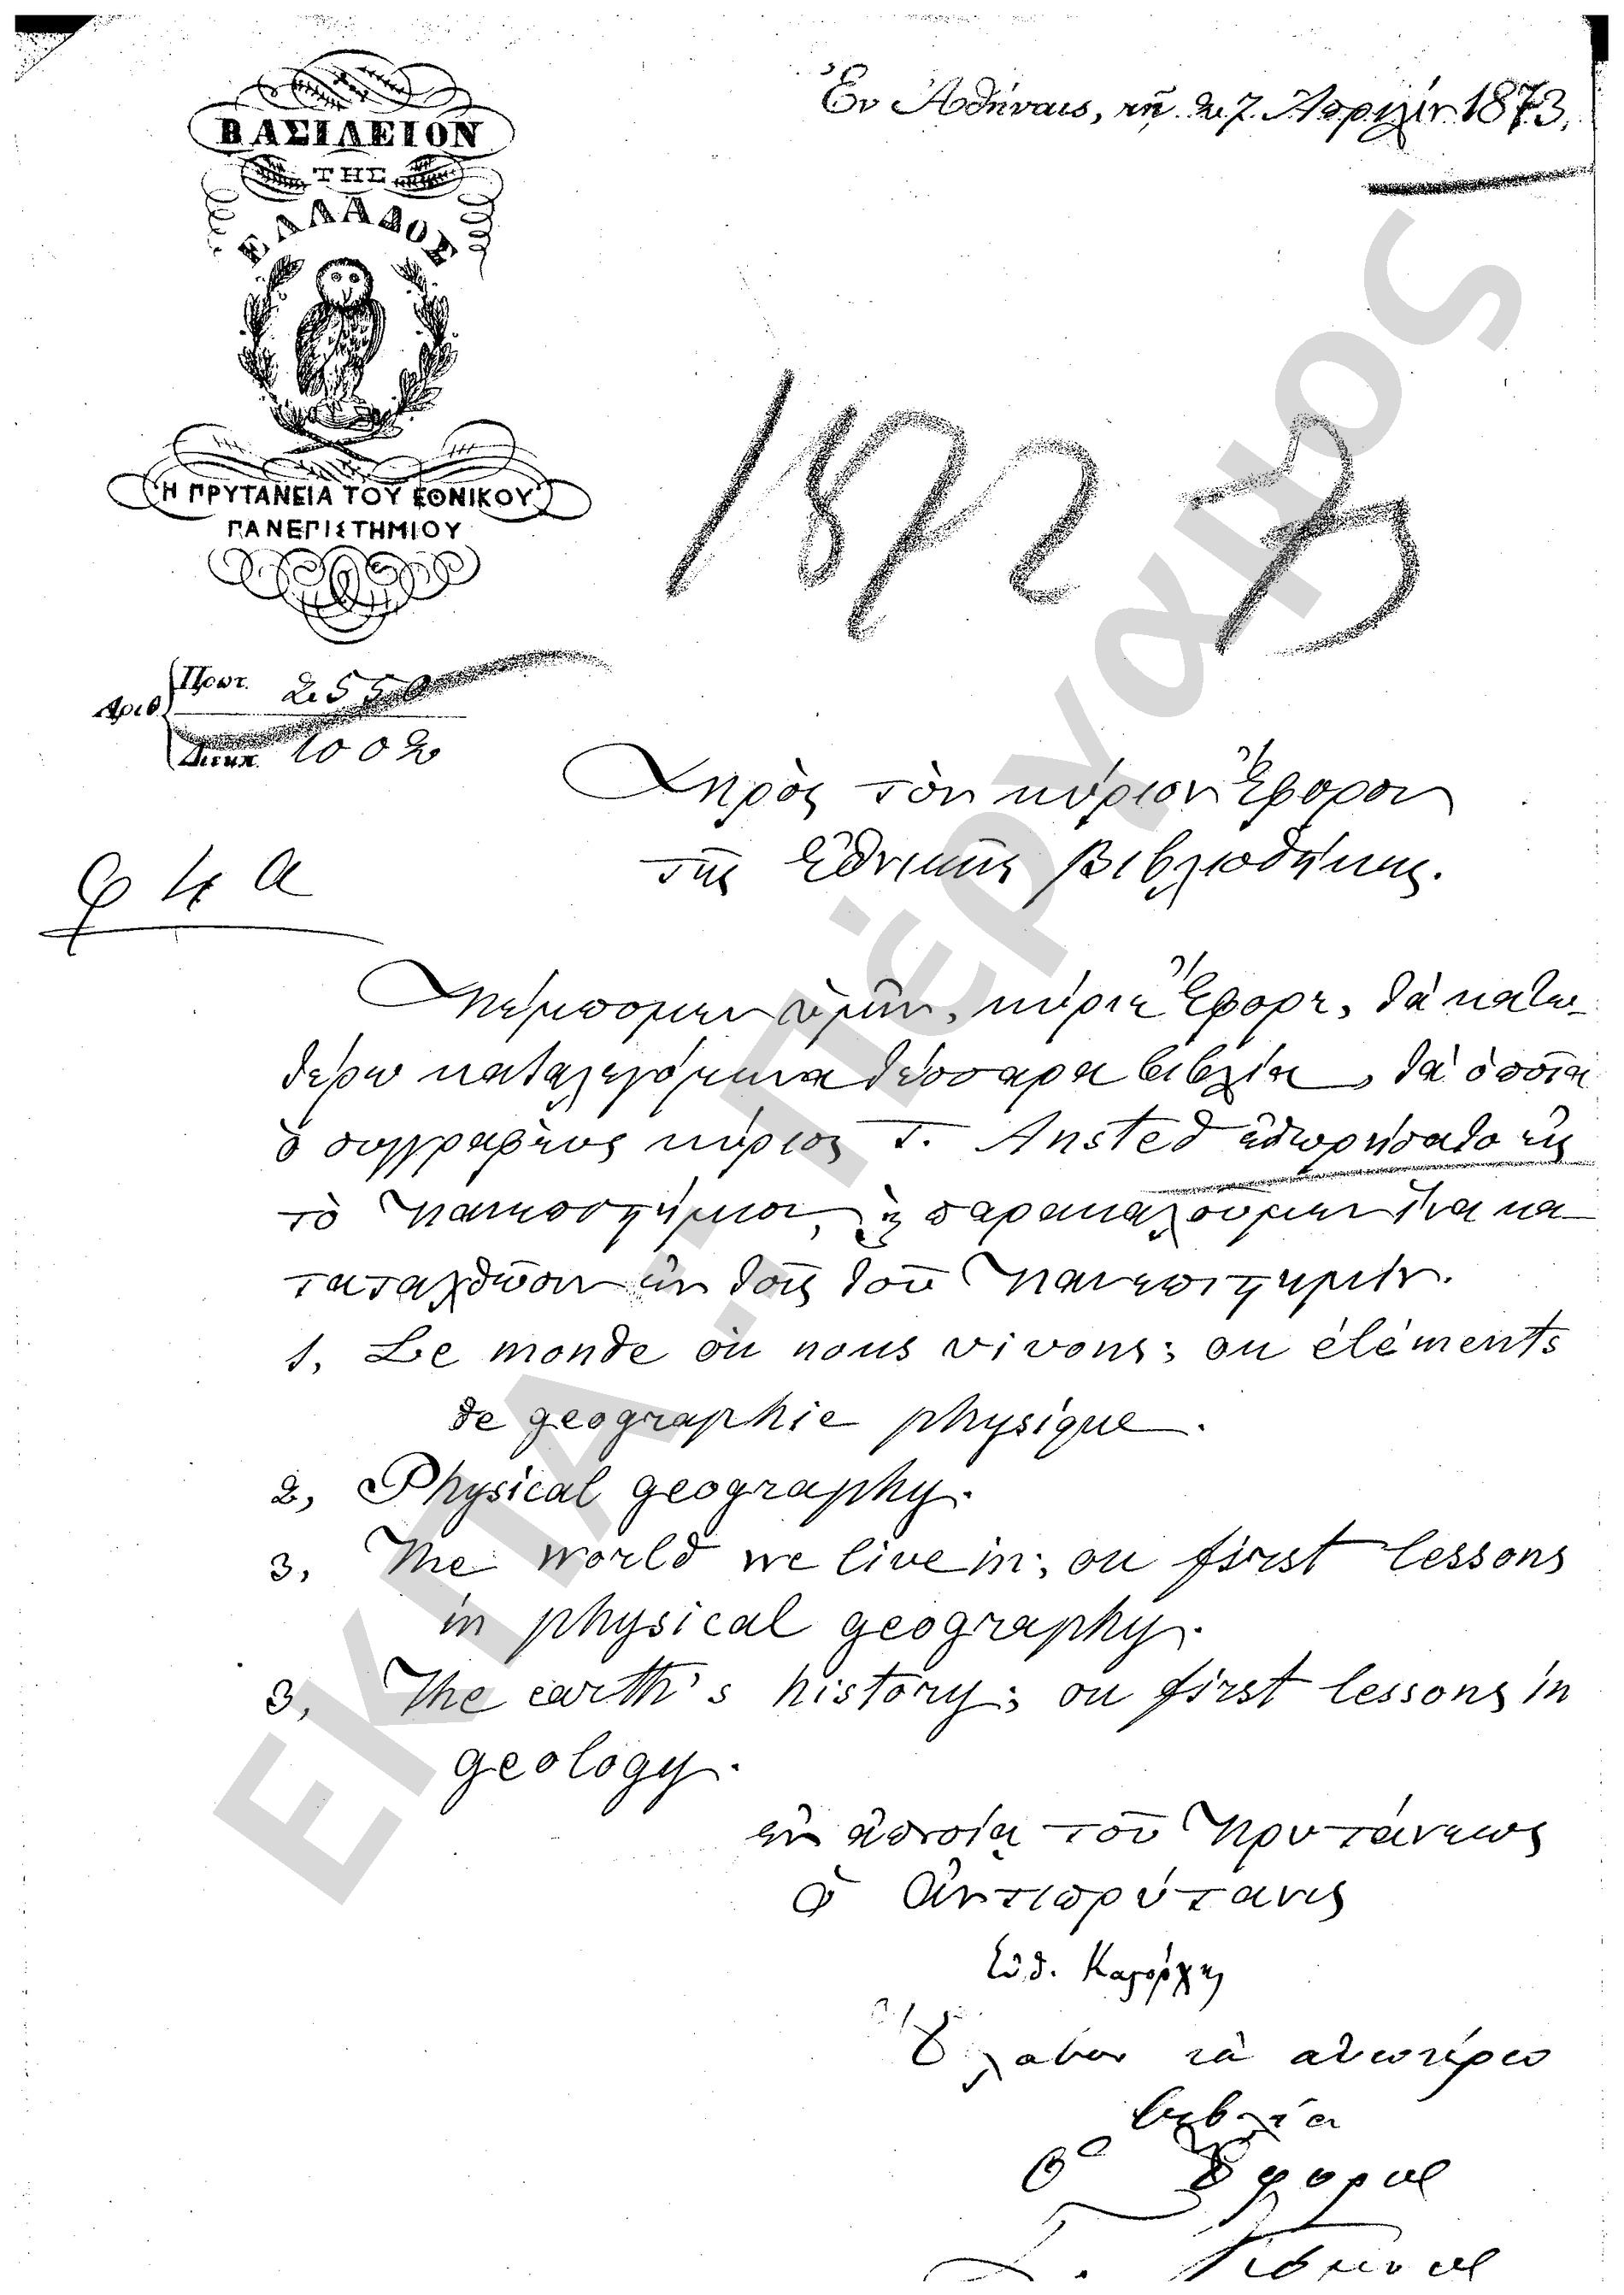 ΒΑΣΙΛΕΙΟΝ
ΤΗΣ
ΕΛΛΑΔΟΣ
Ἡ ΠΡΥΤΑΝΕΙΑ ΤΟΥ ΕΘΝΙΚΟΥ
ΠΑΝΕΠΙΣΤΗΜΙΟΥ
Ἐν Ἀθήναις, τῇ 27 Ἀπριλίου 1873.
1872 73
Ἀριθ.
Πρωτ. 2550
Διεκπ. 1002
φ 4 α
Πρὸς τὸν κύριον Ἔφορον
τῆς Ἐθνικῆς Βιβλιοθήκης.
Πέμπομεν ὑμῖν, κύριε Ἔφορε, τὰ κατω-
τέρω καταλεγόμενα τέσσαρα βιβλία, τὰ ὁποῖα
ὁ συγγραφεὺς κύριος T. Ansted ἐδωρήσατο εἰς
τὸ Πανεπιστήμιον, καὶ παρακαλοῦμεν ἵνα κα-
ταταχθῶσιν ἐν τοῖς τοῦ Πανεπιστημίου.
1, Le monde où nous vivons; ou éléments
de geographie physique.
2, Physical geography.
3, The world we live in; ou first lessons
in physical geography.
3, The earth's history; ou first lessons in
geology.
ἐν ἀπουσίᾳ τοῦ Πρυτάνεως
ὁ Ἀντιπρύτανις
Εὐθ. Καστόρχης
Ἔλαβον τὰ ἀνωτέρω
βιβλία
Ὁ Ἔφορος
ΕΚΠΑ...Πέργαμος